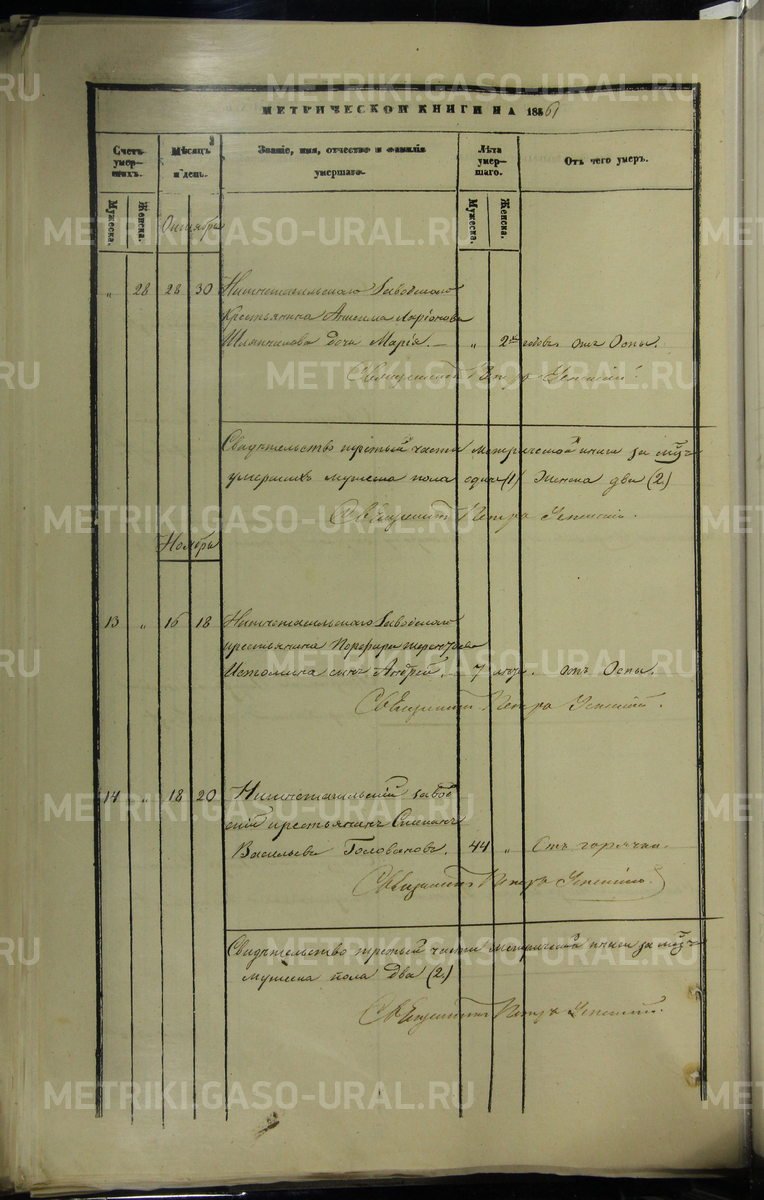 МЕТРИЧЕСКОЙ КНИГИ НА 1861
Счетъ умер-шихъ. Мѣсяцъ и день. Званіе, имя, отчество и фамилія умершаго. Лѣта умер-шаго. Отъ чего умеръ.
Мужеска. Женска. Мужеска. Женска.
Октябрь
„ 28 28 30 Нижнетагильскаго Заводскаго
крестьянина
дочь Марія. — „ 2хъ годовъ отъ Оспы.
Священникъ Петръ Успенскій.
Свидѣтельство третьей части метрической книги за
умершихъ мужеска пола одинъ (1) Женска два (2)
Священникъ Петръ Успенскій.
Ноябрь
13 „ 16 18 Нижнетагильскаго Заводскаго
крестьянина
Истомина сынъ Андрей. — 7 мѣс. отъ Оспы.
Священникъ Петръ Успенскій.
14 „ 18 20 Нижнетагильскій завод
скій крестьянинъ
Васильевъ Головановъ. 44 „ Отъ горячки.
Священникъ Петръ Успенскій.
Свидѣтельство третьей части метрической книги за
мужеска пола два (2.)
Священникъ Петръ Успенскій.
METRIKI.GASO-URAL.RU